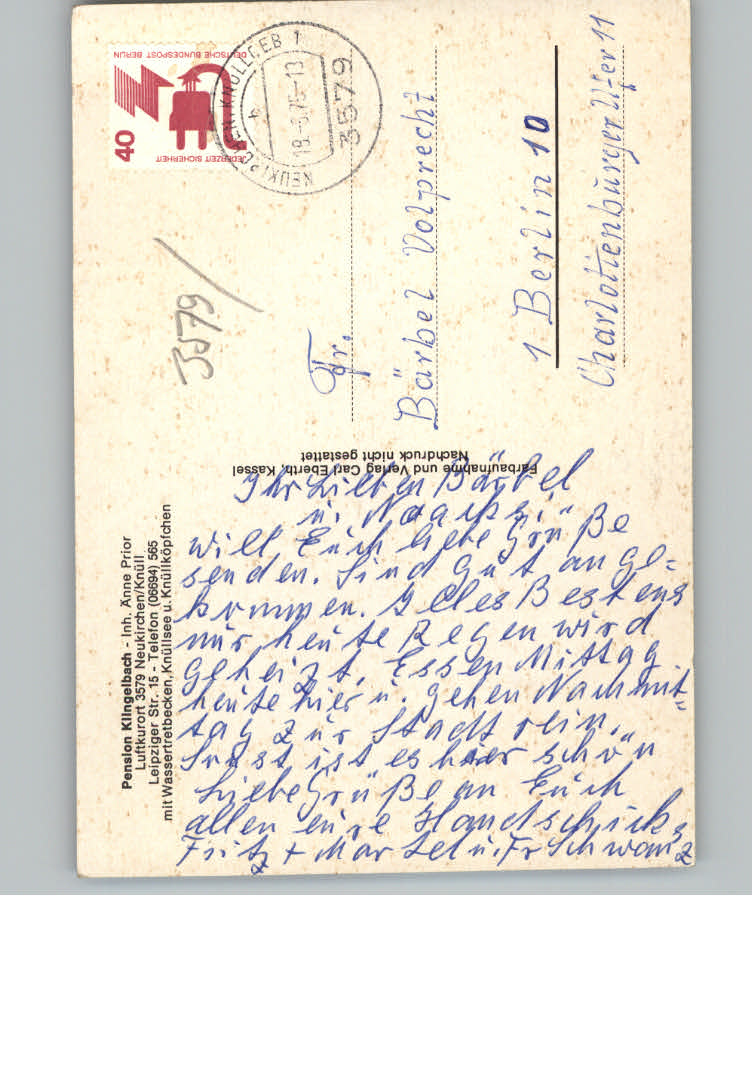 Pension Klingelbach - Inh. Änne Prior
Luftkurort 3579 Neukirchen/Knüll
Leipziger Str. 15 - Telefon (06694) 565
mit Wassertretbecken, Knüllsee u. Knüllköpfchen
Ihr Lieben Bärbel
u.
will Euch liebe Grüße
senden. Sind gut ange-
kommen. Alles Bestens
nur heute Regen wird
geheizt. Essen Mittag
heute hier u. gehen Nachmit-
tag zur Stadt rein.
Sonst ist es hier schön
Liebe Grüße an Euch
allen eure Handschicks
Fritz + Martel u. Fr Schwanz
Farbaufnahme und Verlag Carl Eberth, Kassel
Nachdruck nicht gestattet
3579
DEUTSCHE BUNDESPOST BERLIN
JEDERZEIT SICHERHEIT
40
NEUKIRCHEN, KNÜLLGEB 1
18.-3.75-13
3579
Fr.
Bärbel Volprecht
1 Berlin 10
Charlottenburger Ufer 11